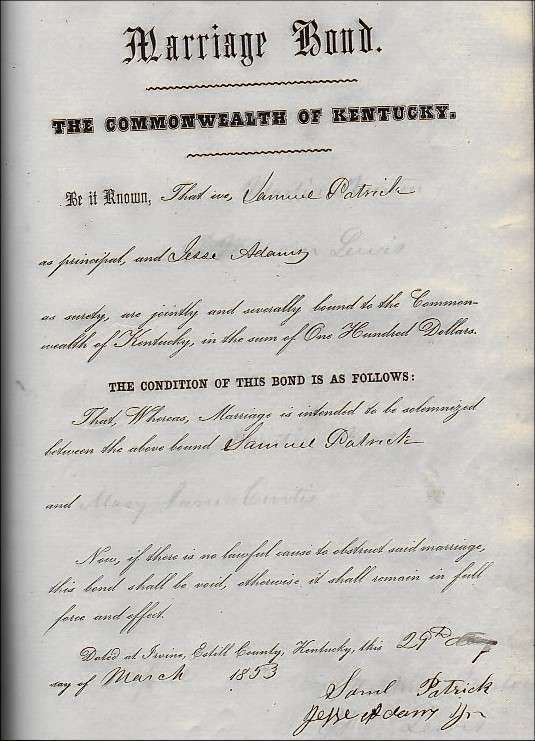 Marriage Bond.
THE COMMONWEALTH OF KENTUCKY.
Be it Known, That we, Samuel Patrick
as principal, and Jesse Adams
as surety, are jointly and severally bound to the Common-
wealth of Kentucky, in the sum of One Hundred Dollars.
THE CONDITION OF THIS BOND IS AS FOLLOWS:
That, Whereas, Marriage is intended to be solemnized
between the above bound Samuel Patrick
and
Now, if there is no lawful cause to obstruct said marriage,
this bond shall be void, otherwise it shall remain in full
force and effect.
Dated at Irvine, Estill County, Kentucky, this 29th
day of March 1853
Saml Patrick
Jesse Adams Jr